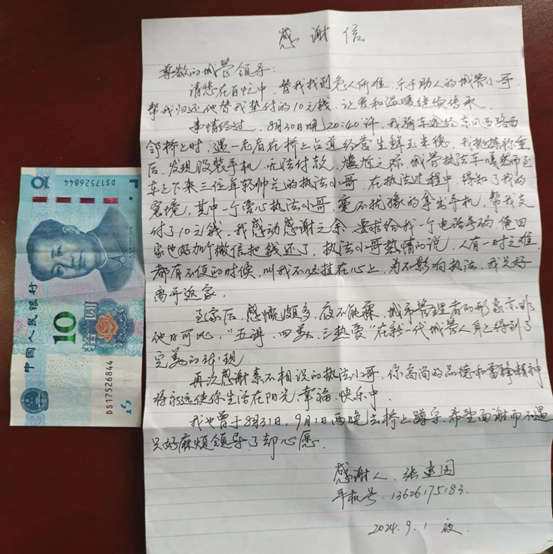 感谢信
尊敬的城管领导:
请您在百忙中,替我找到急人所难、乐于助人的城管小哥,
帮我归还他替我垫付的10元钱,让爱和温暖继续传承。
事情经过,8月30日晚20:40许,我骑车途经东山西路西
桥上时,遇一老者在桥上占道经营生鲜玉米棒,我挑选称重
后,发现没装手机,无法付款,尴尬之际,城管执法车
车上下来三位年轻帅气的执法小哥,在执法过程中,得知了我的
窘境,其中一个爱心执法小哥,毫不犹豫的拿出手机,帮我支
付了10元钱。我感动感谢之余,要求给我一个电话号码,便回
家也好加个微信把钱还了,执法小哥热情的说,人有一时之难,
都有不便的时候,叫我不必挂在心上,为不影响执法,我只好
离开返家。
到家后,感慨颇多,夜不能寐,城市管理者的形象亦非
他日可比,"五讲、四美、三热爱"在新一代城管人身上得到了
完美的体现
再次感谢素不相识的执法小哥,你高尚的品德和雷锋精神
将永远使你生活在阳光、幸福、快乐中
我也曾于8月31日,9月1日两晚去桥上蹲守,希望面谢而不遇
只好麻烦领导了却心愿。
感谢人:张建国
手机号:13626175183
2024.9.1 夜
中国人民银行
10
拾圆
DS17526844
DS17526844